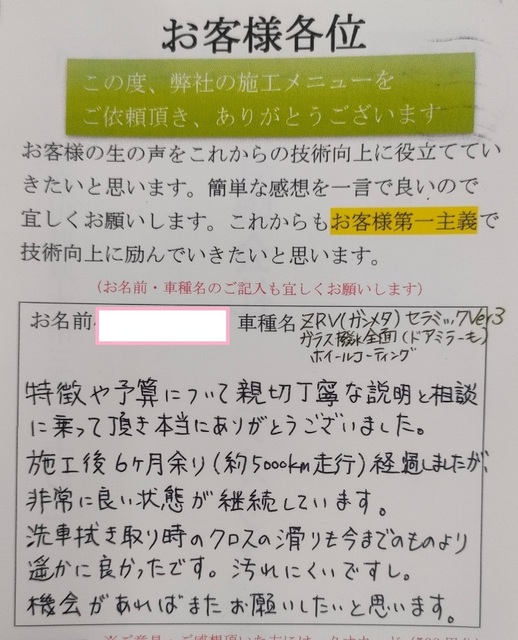 お客様各位
この度、弊社の施工メニューを
ご依頼頂き、ありがとうございます
お客様の生の声をこれからの技術向上に役立ててい
きたいと思います。簡単な感想を一言で良いので
宜しくお願いします。これからもお客様第一主義で
技術向上に励んでいきたいと思います。
(お名前・車種名のご記入も宜しくお願いします)
お名前 車種名 ZRV(ガンメタ) セラミックVer3
ガラス撥水全面(ドアミラーも)
ホイールコーティング
特徴や予算について親切丁寧な説明と相談
に乗って頂き本当にありがとうございました。
施工後6ヶ月余り(約5000km走行)経過しましたが、
非常に良い状態が継続しています。
洗車拭き取り時のクロスの滑りも今までのものより
遥かに良かったです。汚れにくいですし。
機会があればまたお願いしたいと思います。